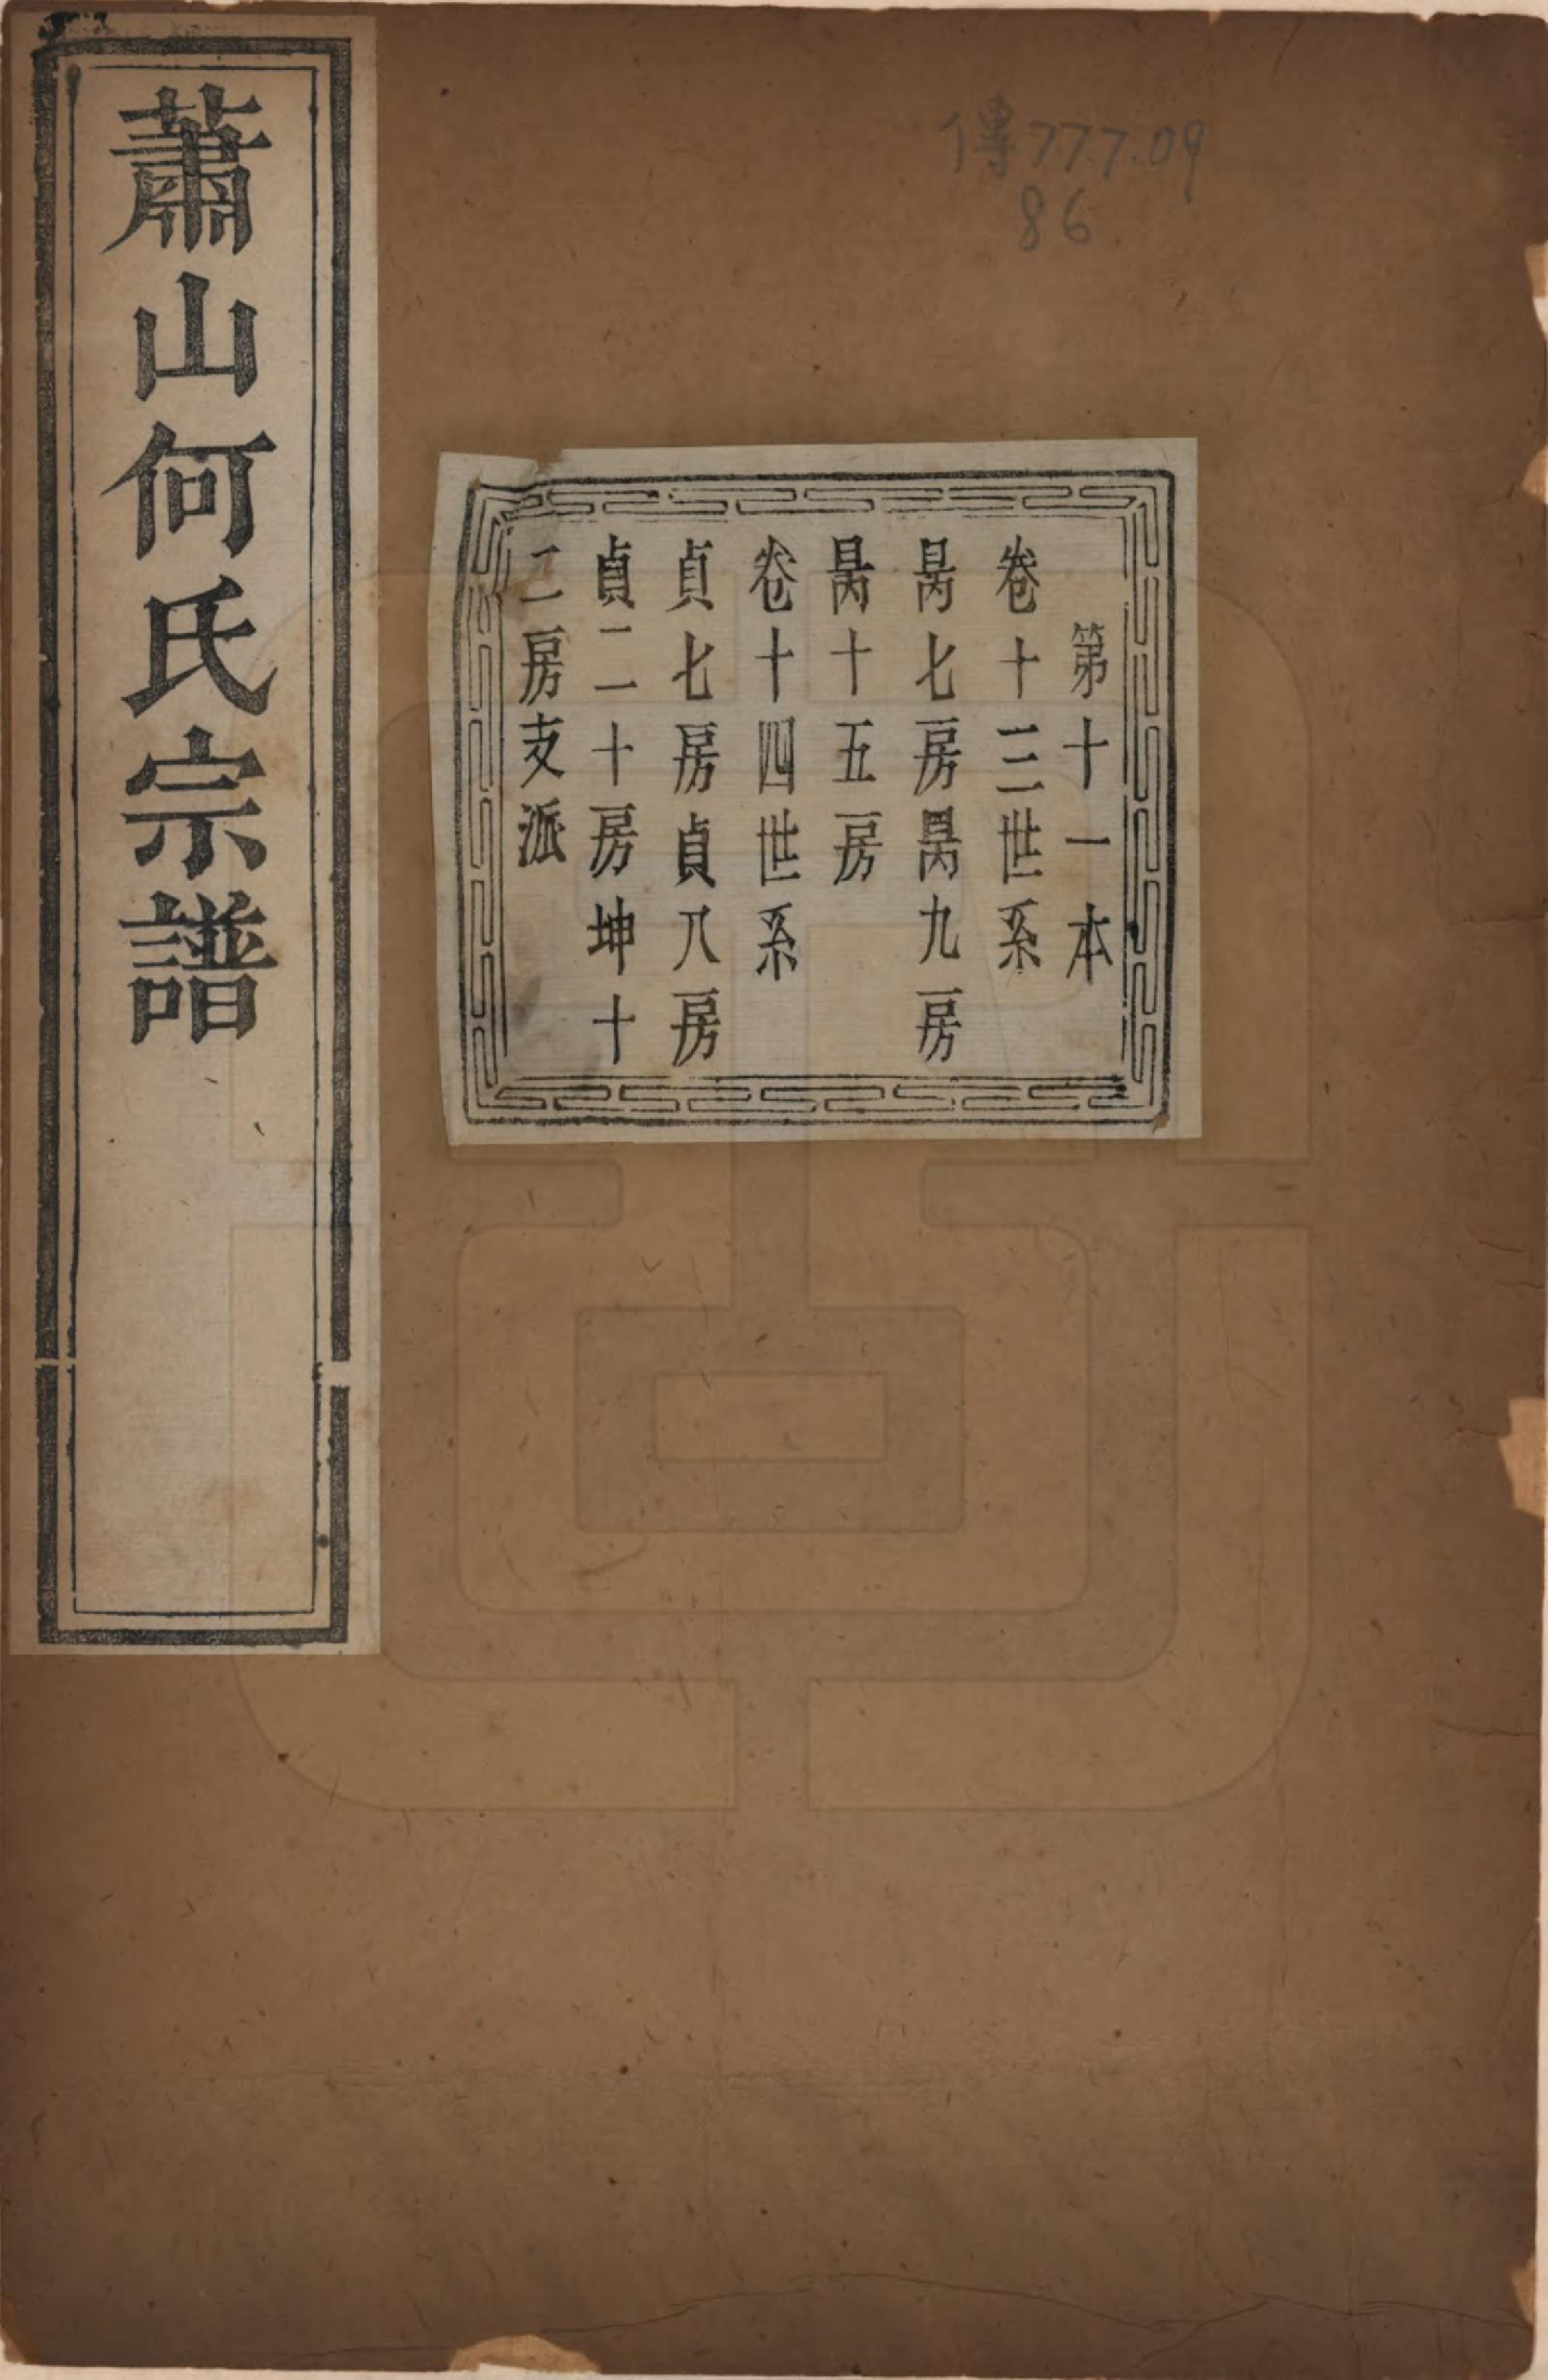 蕭山何氏宗譜
傳777.09
86
第十一本
卷十三世系
昺七房昺九房
昺十五房
卷十四世系
貞七房貞八房
貞二十房坤十
二房支派